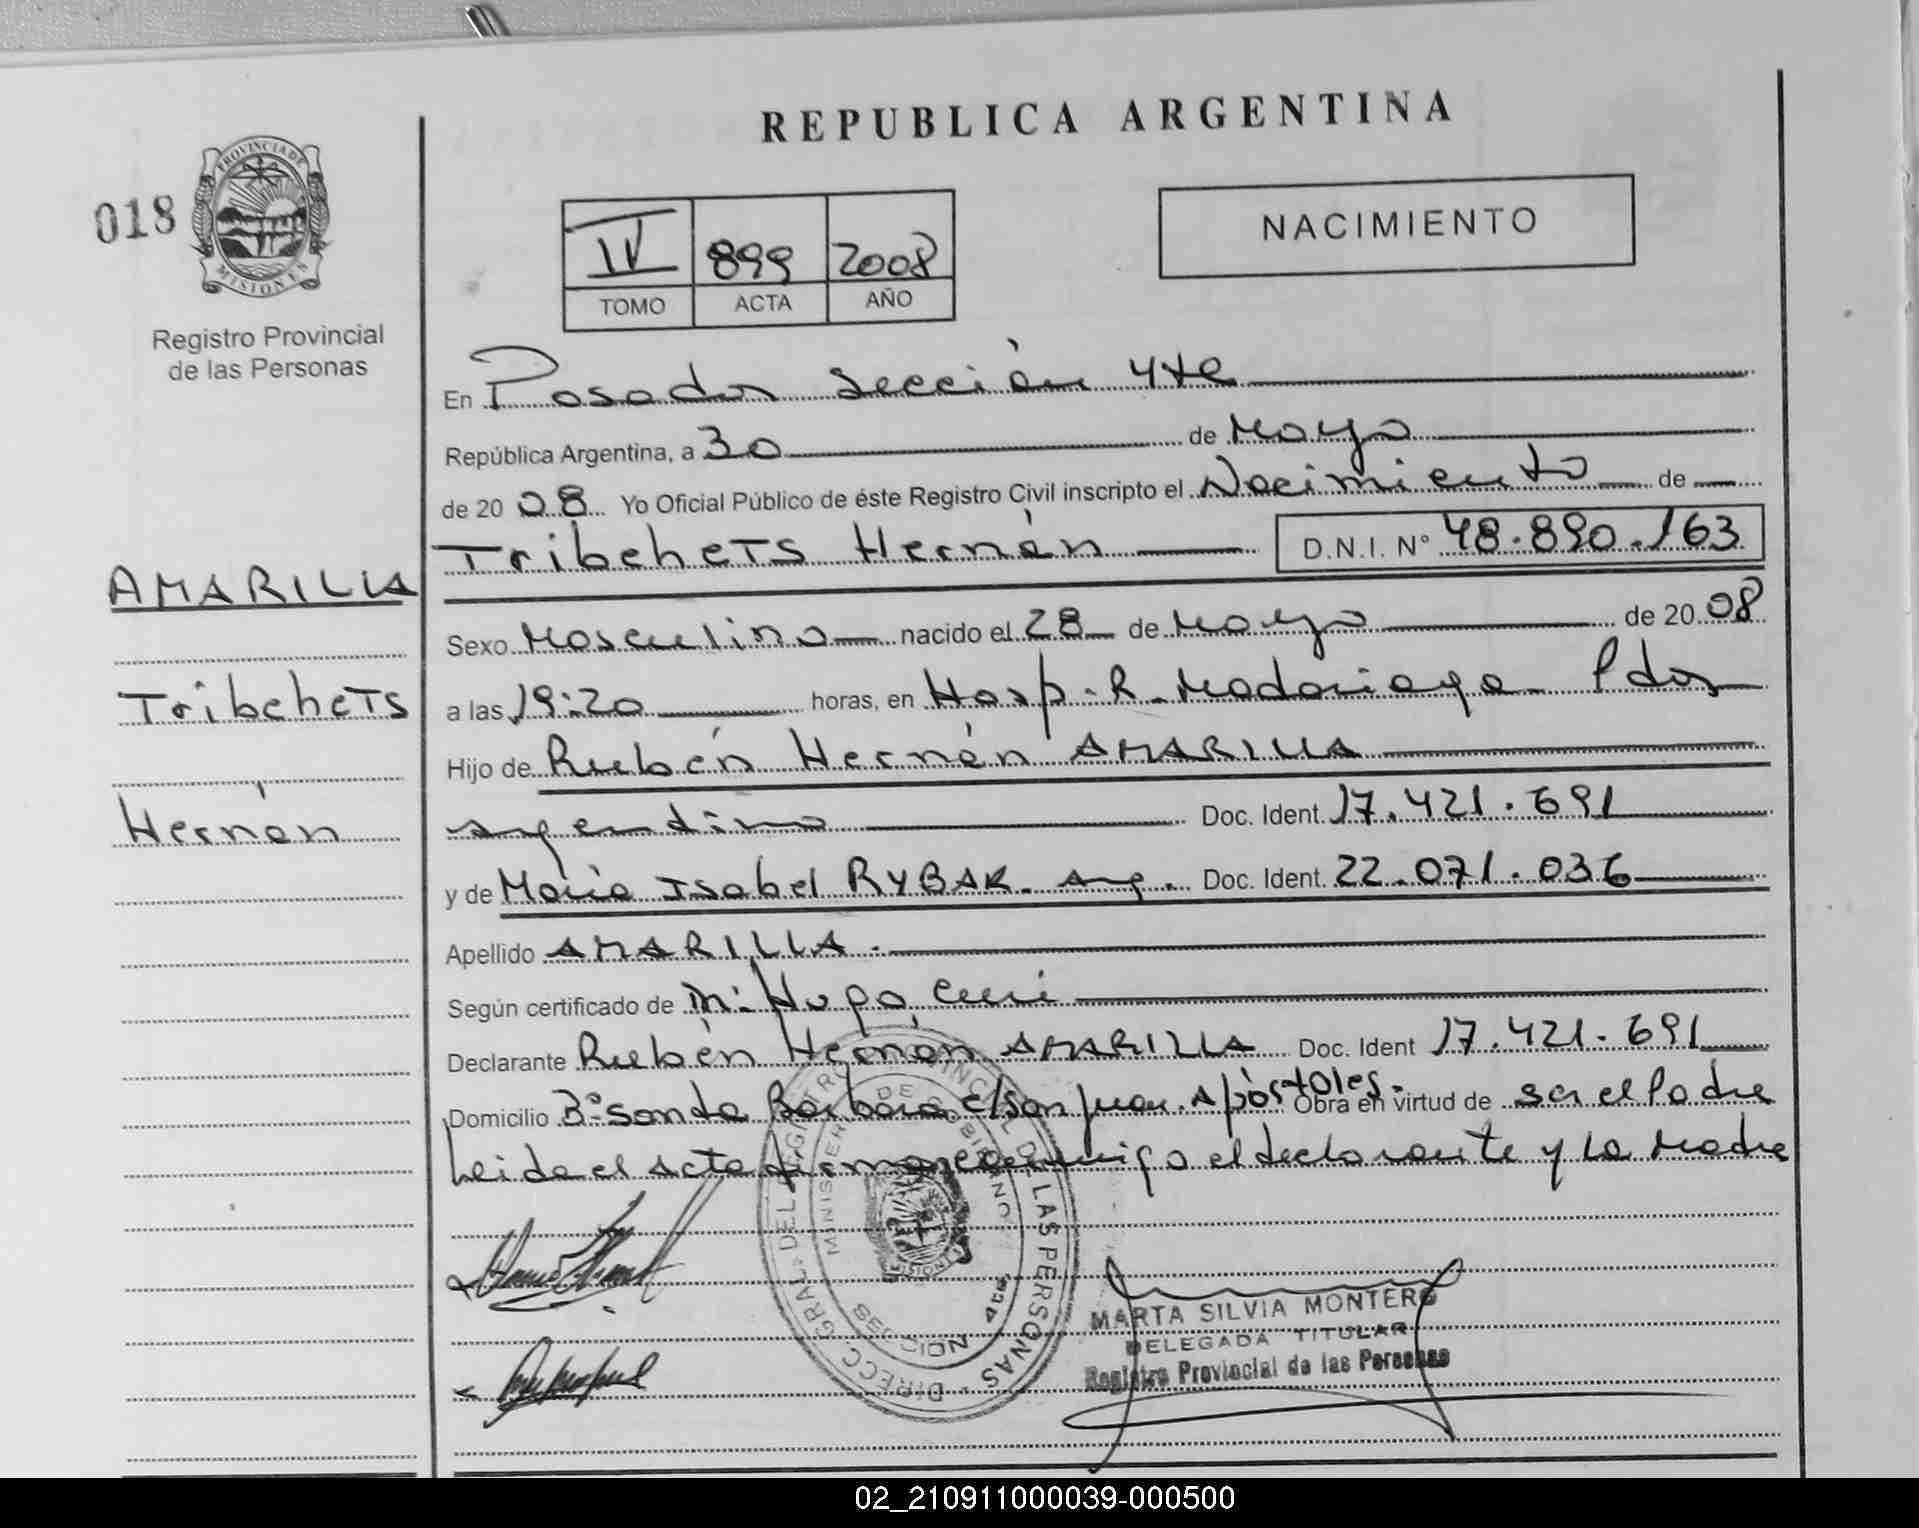 REPUBLICA ARGENTINA
018
PROVINCIA DE
MISIONES
Registro Provincial
de las Personas
IV 899 2008
TOMO ACTA AÑO
NACIMIENTO
En Posadas Sección 4ta
República Argentina, a 30 de Mayo
de 20 08 Yo Oficial Público de éste Registro Civil inscripto el Nacimiento de
Tribehets Hernán D.N.I. Nº 48.890.163
AMARILLA
Tribehets
Hernán
Sexo Masculino nacido el 28 de Mayo de 20 08
a las 19:20 horas, en Hosp. R. Madariaga Pdas
Hijo de Rubén Hernán AMARILLA
argentino Doc. Ident. 17.421.691
y de María Isabel RYBAK. Arg. Doc. Ident. 22.071.036
Apellido AMARILLA.
Según certificado de M: Hugo
Declarante Rubén Hernán AMARILLA Doc. Ident 17.421.691
Domicilio Bº Santa Bárbara c/San Juan. Apóstoles. Obra en virtud de ser el Padre
Leida el acta firman conmigo el declarante y la Madre
DIRECC. GRAL. DEL REGISTRO PROVINCIAL DE LAS PERSONAS
MINISTERIO DE GOBIERNO
MISIONES
4ta.
MARTA SILVIA MONTERO
DELEGADA TITULAR
Registro Provincial de las Personas
02_210911000039-000500